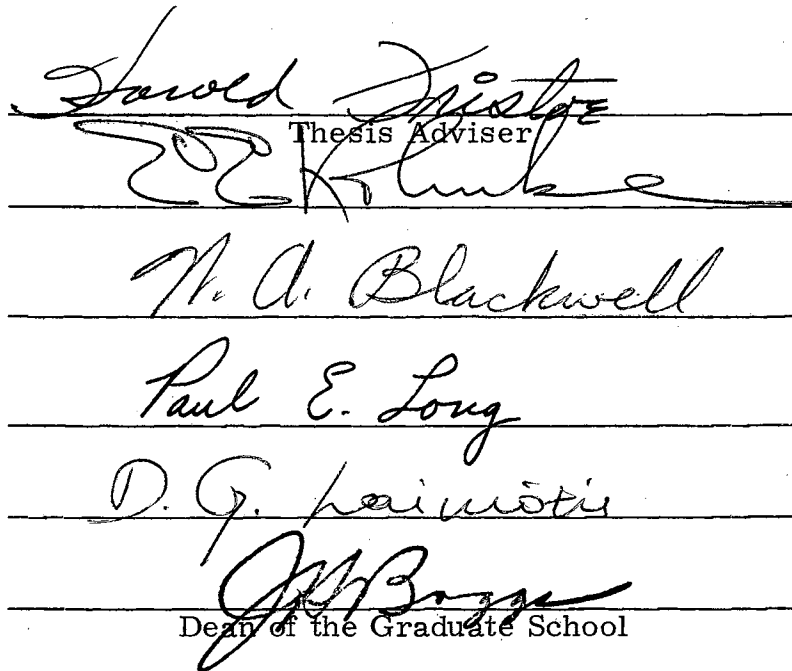 Harold Fristoe
Thesis Adviser
W. A. Blackwell
Paul E. Long
D. G. Lainiotis
Boggs
Dean of the Graduate School